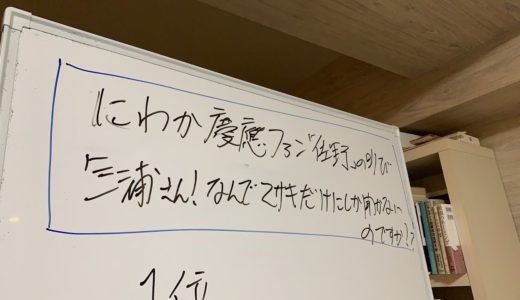 にわか慶應ファン「佐野」の叫び
「三浦さん!なんでマサキだけにしか向かない
のですか!?
1位